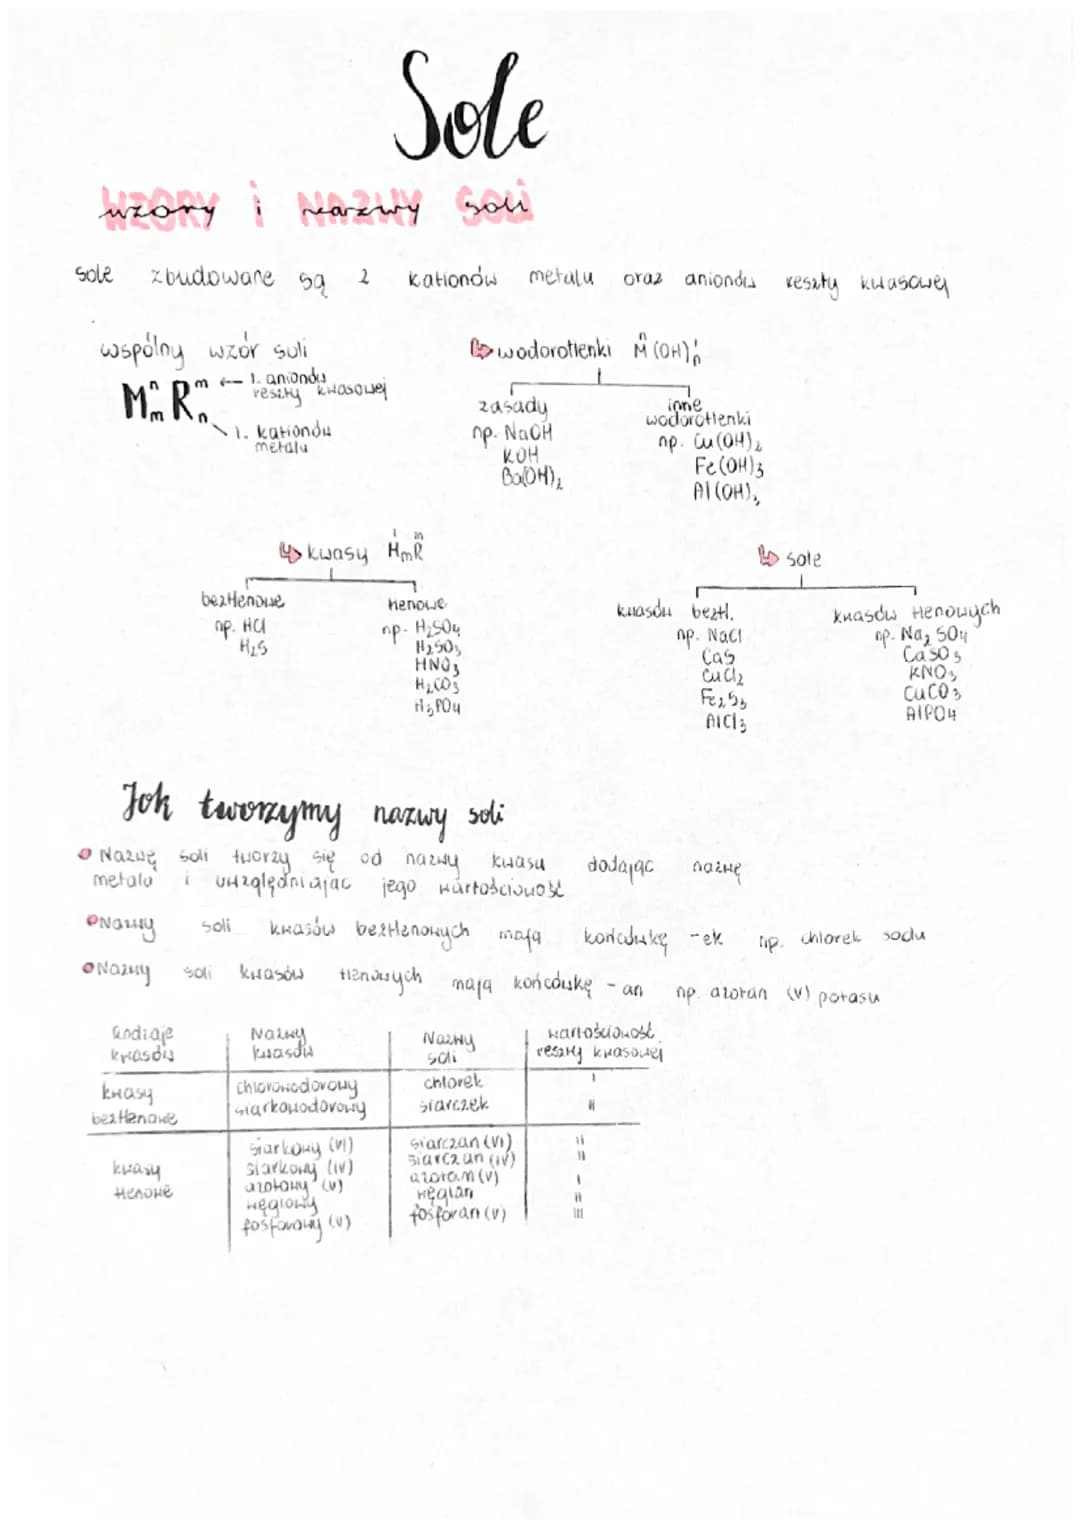 Sole
wzory i nazwy soli
sole zbudowane są z kationów metalu oraz anionów reszty kwasowej
wspólny wzór soli
MⁿₘRᵐₙ ← l. anionów
reszty kwasowej
l. kationów
metalu
↳ wodorotlenki Mⁿ(OH)ᴵₙ
zasady
np. NaOH
KOH
Ba(OH)₂
inne
wodorotlenki
np. Cu(OH)₂
Fe(OH)₃
Al(OH)₃
↳ kwasy HᴵₘRᵐ
beztlenowe
np. HCl
H₂S
tlenowe
np. H₂SO₄
H₂SO₃
HNO₃
H₂CO₃
H₃PO₄
↳ sole
kwasów beztl.
np. NaCl
CaS
CuCl₂
Fe₂S₃
AlCl₃
kwasów tlenowych
np. Na₂SO₄
CaSO₃
KNO₃
CuCO₃
AlPO₄
Jak tworzymy nazwy soli
Nazwę soli tworzy się od nazwy kwasu dodając nazwę
metalu i uwzględniając jego wartościowość
Nazwy soli kwasów beztlenowych mają końcówkę -ek np. chlorek sodu
Nazwy soli kwasów tlenowych mają końcówkę -an np. azotan (V) potasu
Rodzaje
kwasów
Nazwy
kwasów
Nazwy
soli
wartościowość
reszty kwasowej
kwasy
beztlenowe
chlorowodorowy
siarkowodorowy
chlorek
siarczek
I
II
kwasy
tlenowe
siarkowy (VI)
siarkowy (IV)
azotowy (V)
węglowy
fosforowy (V)
siarczan (VI)
siarczan (IV)
azotan (V)
węglan
fosforan (V)
II
II
I
II
III